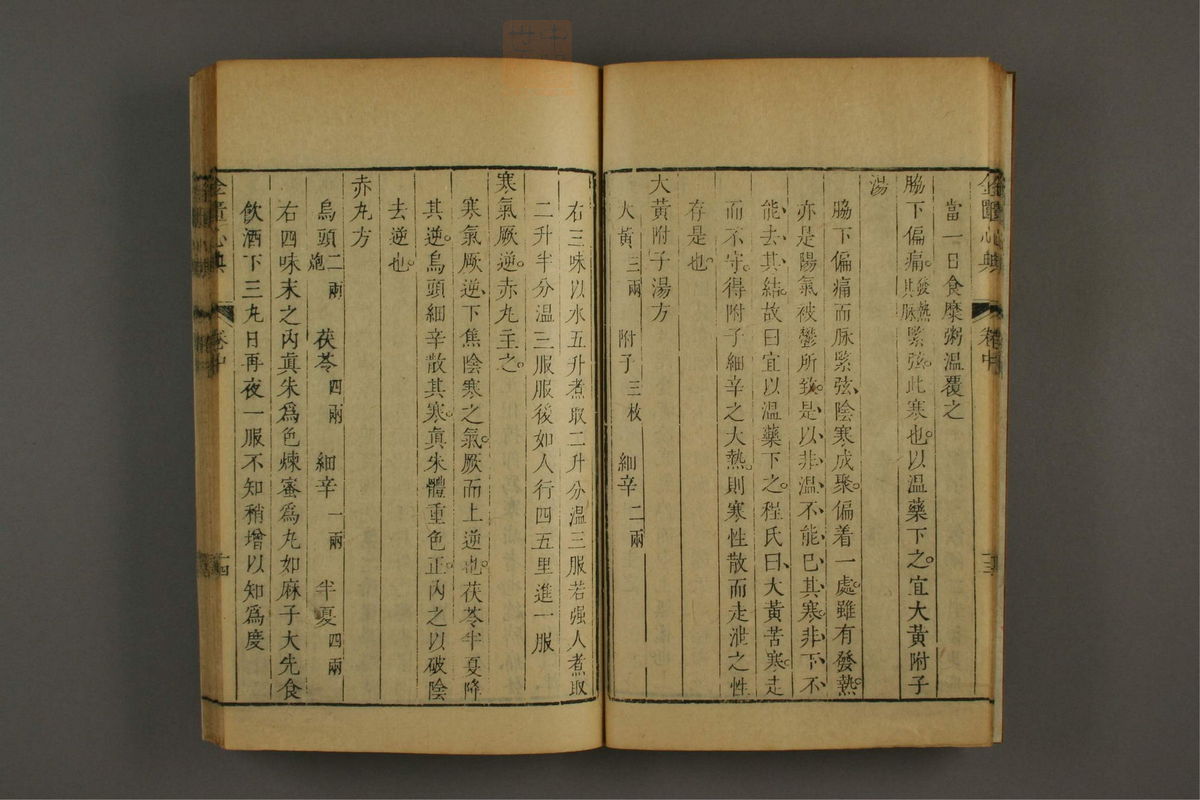 金匱心典 卷中 十三
當一日食糜粥溫覆之
脇下偏痛。發熱其脉緊弦。此寒也。以溫藥下之。宜大黃附子
湯
脇下偏痛而脉緊弦、陰寒成聚。偏着一處。雖有發熱。
亦是陽氣被鬱所致。是以非溫不能已其寒。非下不
能去其結。故曰宜以溫藥下之。程氏曰、大黃苦寒。走
而不守。得附子細辛之大熱。則寒性散而走泄之性
存是也。
大黃附子湯方
大黃三兩 附子三枚 細辛二兩
右三味以水五升煮取二升分溫三服若强人煮取
二升半分溫三服服後如人行四五里進一服
寒氣厥逆。赤丸主之。
寒氣厥逆、下焦陰寒之氣。厥而上逆也。茯苓半夏降
其逆。烏頭細辛散其寒。眞朱體重色正。內之以破陰
去逆也。
赤丸方
烏頭二兩炮 茯苓四兩 細辛一兩 半夏四兩
右四味末之內眞朱爲色煉蜜爲丸如麻子大先食
飲酒下三丸日再夜一服不知稍增以知爲度
金匱心典 卷中 十四